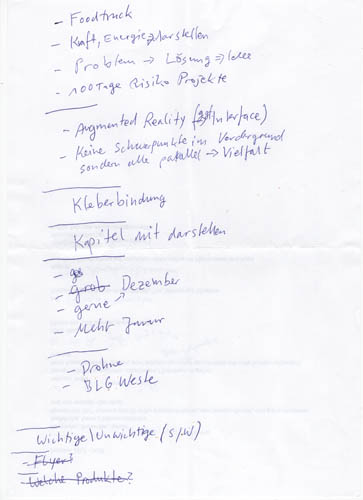 - Foodtruck
- Kraft, Energie darstellen
- Problem → Lösung ⇒ Idee
- 100 Tage Risiko Projekte
- Augmented Reality (Interface)
- Keine Schwerpunkte im Vordergrund
sondern alle parallel → Vielfalt
Kleberbindung
Kapitel mit darstellen
- grob
- gerne → Dezember
- Nicht Januar
- Drohne
- BLG Weste
Wichtige/Unwichtige (S/W)
- Flyer?
- Welche Produkte?